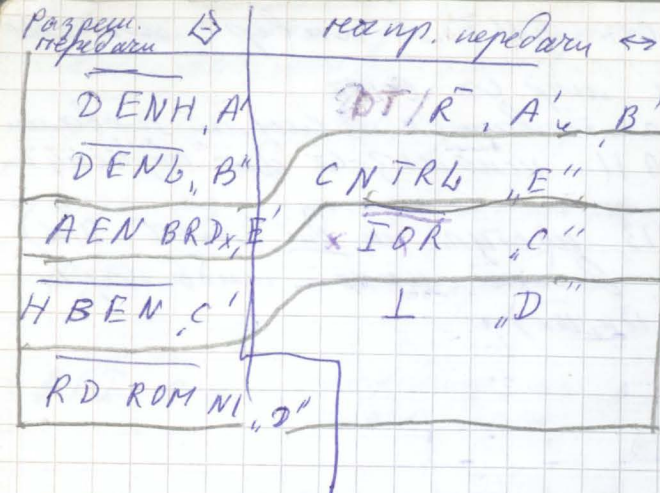 Разреш. напр. передачи ↔
передачи
DENH „A" DT/R „A" и „B"
DENL „B" CNTRL „E"
AEN BRDx „E" x IOR „C"
HBEN „C" ⊥ „D"
RD ROM NL „D"